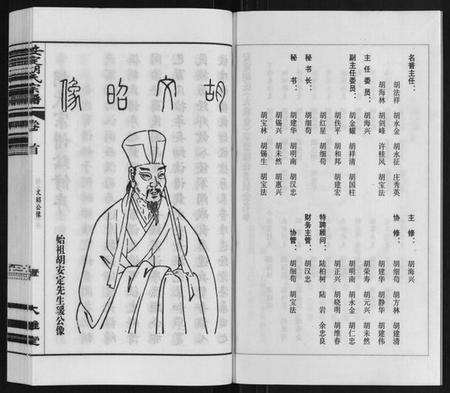 名誉主任：
胡法祥 胡水金 胡水征 庄秀英
胡海林 胡剑峰 许桂风 胡宝法
主任委员： 胡海兴
副主任委员： 胡金耀 胡祥清 胡国柱
胡佚平 胡和邦 胡建宏
胡红星 胡细苟
秘书长： 胡细苟
秘书： 胡建华 胡明南 胡汉忠
胡锡兴 胡未然 胡惠兴
胡宝林 胡锡生 胡宝法
主修： 胡海兴
协修： 胡细苟 胡方林 胡建清
胡建华 胡静华 胡建伟
胡荣寿 胡元兴 胡未然
胡明南 胡水金 胡仁忠
胡正兴 胡晓明 胡维春
特聘顾问： 陆柏树 陆岩 余忠良
财务主管： 胡汉忠
协管： 胡细苟 胡宝法
胡文昭像
始祖胡安定先生瑗公像
安定胡氏宗譜
卷首
文昭公像
壹
大雅堂